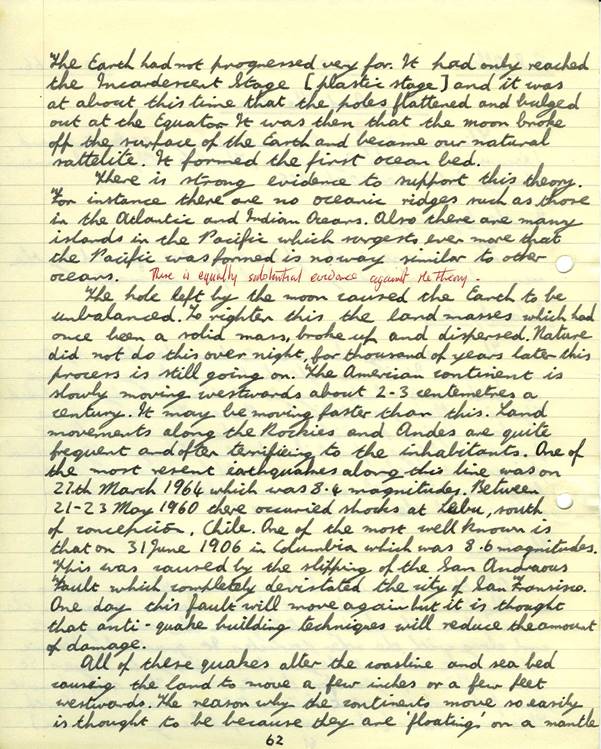 The Earth had not progressed very far. It had only reached
the Incardescent Stage [plastic stage] and it was
at about this time that the poles flattened and bulged
out at the Equator. It was then that the moon broke
off the surface of the Earth and became our natural
sattelite. It formed the first ocean bed.
There is strong evidence to support this theory.
For instance there are no oceanic ridges such as those
in the Atlantic and Indian Oceans. Also there are many
islands in the Pacific which surgests ever more that
the Pacific was formed is no way similar to other
oceans. There is equally substantial evidence against the theory.
The hole left by the moon caused the Earth to be
unbalanced. To righten this the land masses which had
once been a solid mass, broke up and dispersed. Nature
did not do this over night, for thousand of years later this
process is still going on. The American continent is
slowly moving westwards about 2-3 centemetres a
century. It may be moving faster than this. Land
movements along the Rockies and Andes are quite
frequent and ofter terrificing to the inhabitants. One of
the most resent earthquakes along this line was on
27th March 1964 which was 8.4 magnitudes. Between
21-23 May 1960 there occuried shocks at Lebu, south
of concepción, Chile. One of the most well known is
that on 31 June 1906 in Columbia which was 8.6 magnitudes.
This was caused by the slipping of the San Andraous
Fault which completely devistated the city of San Fransisco.
One day this fault will move again but it is thought
that anti-quake building techniques will reduce the amount
of damage.
All of these quakes alter the coasline and sea bed
causing the land to move a few inches or a few feet
westwards. The reason why the continents move so easily
is thought to be because they are 'floating' on a mantle
62